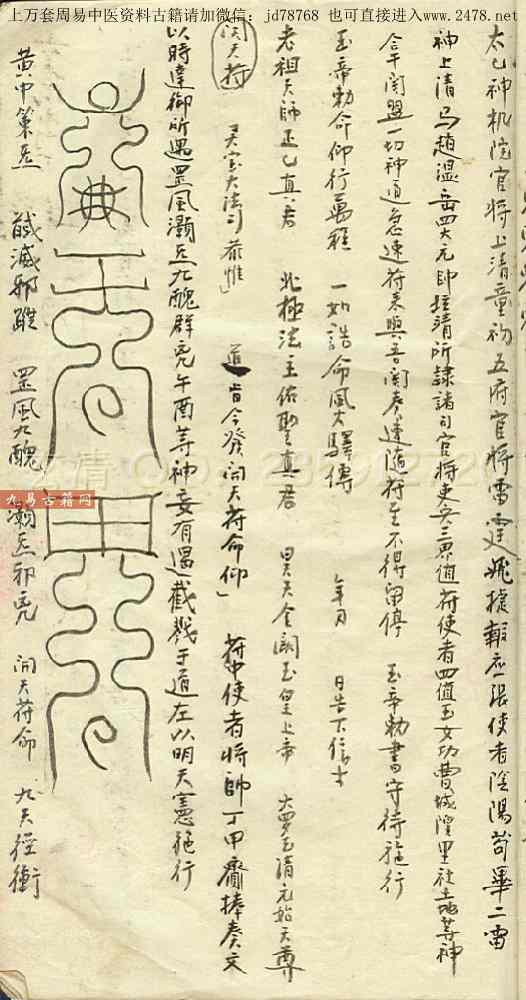 上万套周易中医资料古籍请加微信：jd78768 也可直接进入www.2478.net
太乙神机院官将上清童初五府官将雷霆飛捷報应張使者陰陽苟畢二雷
神上清馬趙溫 四大元帥 清所隸諸司官将吏兵三界值符使者四值玉女功曹城隍里社土地等神
閞盟一切神道急速符来與吾閞奏速随符至不得留停 玉帝勅書守待施行
玉帝勅命仰行萬程 一如誥命風火驛傳 年月 日告下 士
老祖天師正乙真君 北極法主佑聖真君 昊天金闕玉皇上帝 大罗玉清元始天尊
開天符 灵宝大法司 恭惟 道旨今發開天符命仰 符中使者将帥丁甲齎捧奏文
以時達御所遇罡風灝炁九醜群兇午酉等神妄有遏截戮于道左以明天憲 行
黄中策炁 馘滅邪蹤 罡風九醜 灝炁邪兇 開天符命 九天徑衝
九易古籍网